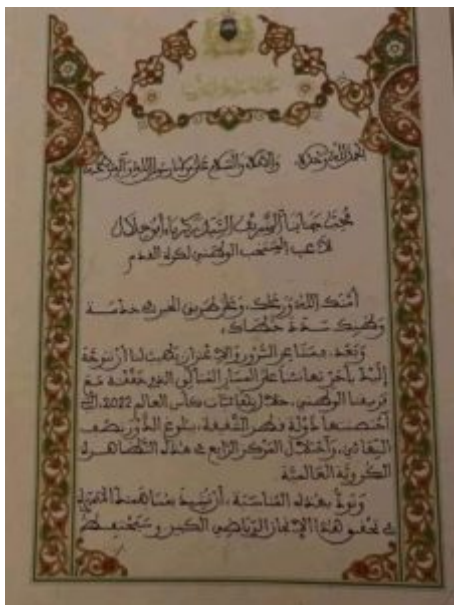 الحمد لله وحده والصلاة والسلام على مولانا رسول الله وآله وصحبه
محب جنابنا الشريف السيد زكرياء أبو خلال
لاعب المنتخب الوطني لكرة القدم
أمنك الله ورعاك، وعلى طريق الخير في خدمة
وطنك سدد خطاك،
وبعد، السرور والاعتزاز يطيب لنا أن نتوجه
إليك بأحر تهانئنا على المسار المثالي الذي حققته مع
فريقنا الوطني، خلال نهائيات كأس العالم 2022، التي
احتضنتها دولة قطر الشقيقة، ببلوغ الدور نصف
النهائي، واحتلال المركز الرابع في هذه التظاهرة
الكروية العالمية
ونود بهذه المناسبة، أن نشيد
في تحقيق هذا الإنجاز الرياضي الكبير